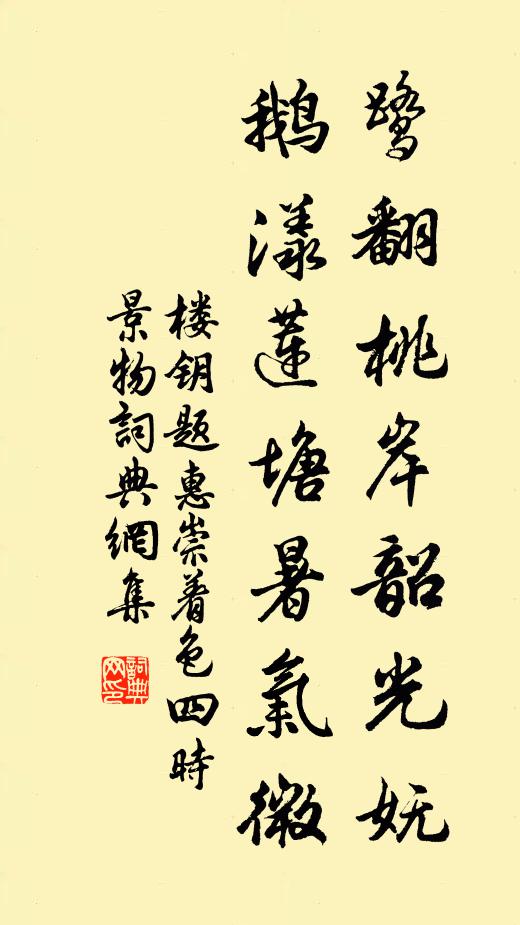 鹭翻桃岸韶光妩
鵝漾蓮塘暑氣微
楼钥题惠崇着色四時
景物詞典網集
詞典網印